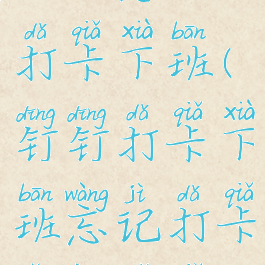 dǎ qiǎ xià bān
打卡下班(
dīng dīng dǎ qiǎ xià
钉钉打卡下
bān wàng jì dǎ qiǎ
班忘记打卡